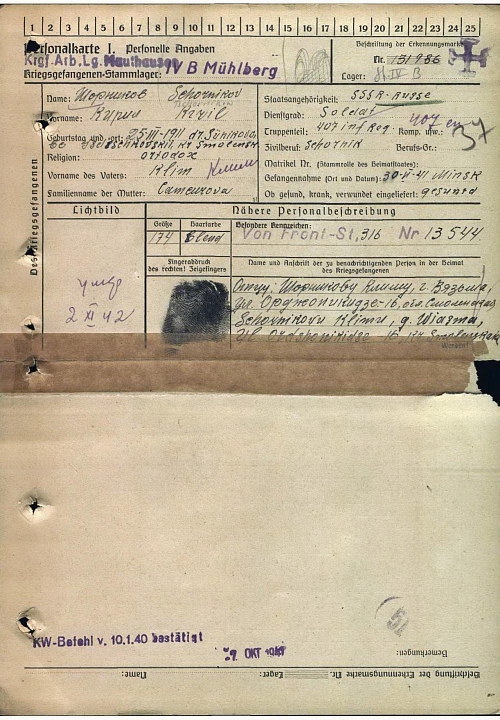 1 2 3 4 5 6 7 8 9 10 11 12 13 14 15 16 17 18 19 20 21 22 23 24 25
Personalkarte I. Personelle Angaben
Beschriftung der Erkennungsmarke
Krgf.-Arb.Lg. Mauthausen
Nr. 131986
Kriegsgefangenen-Stammlager: IV B Mühlberg
Lager: IV B
Des Kriegsgefangenen
Name: Шорников Schornikov
Vorname: Кирил Kiril
Geburtstag und -ort:
Religion: ortodox
Vorname des Vaters: Klim Клим
Familienname der Mutter:
Staatsangehörigkeit: SSSR-Russe
Dienstgrad: Soldat
Truppenteil: 407 inf Reg. Komp. usw.:
Zivilberuf: Schornik Berufs-Gr.:
37
Matrikel Nr. (Stammrolle des Heimatstaates):
Gefangennahme (Ort und Datum): 30-VI-41 Minsk
Ob gesund, krank, verwundet eingeliefert: gesund
Lichtbild
Nähere Personalbeschreibung
Größe Haarfarbe Besondere Kennzeichen:
174 Blond Von Front-St. 316 Nr 13 544
Fingerabdruck
des rechten! Zeigefingers
Name und Anschrift der zu benachrichtigenden Person in der Heimat
des Kriegsgefangenen
умер
2 XI 42
Отцу, Шорникову Климу, г. Вязьма,
ул. Орджоникидзе-16, обл. Смоленская
Schornikov Klimu, g. Wiasma,
KW-Befehl v. 10.1.40 bestätigt
7. OKT 1941
52
Bemerkungen:
Beschriftung der Erkennungsmarke Nr. Lager: Name: